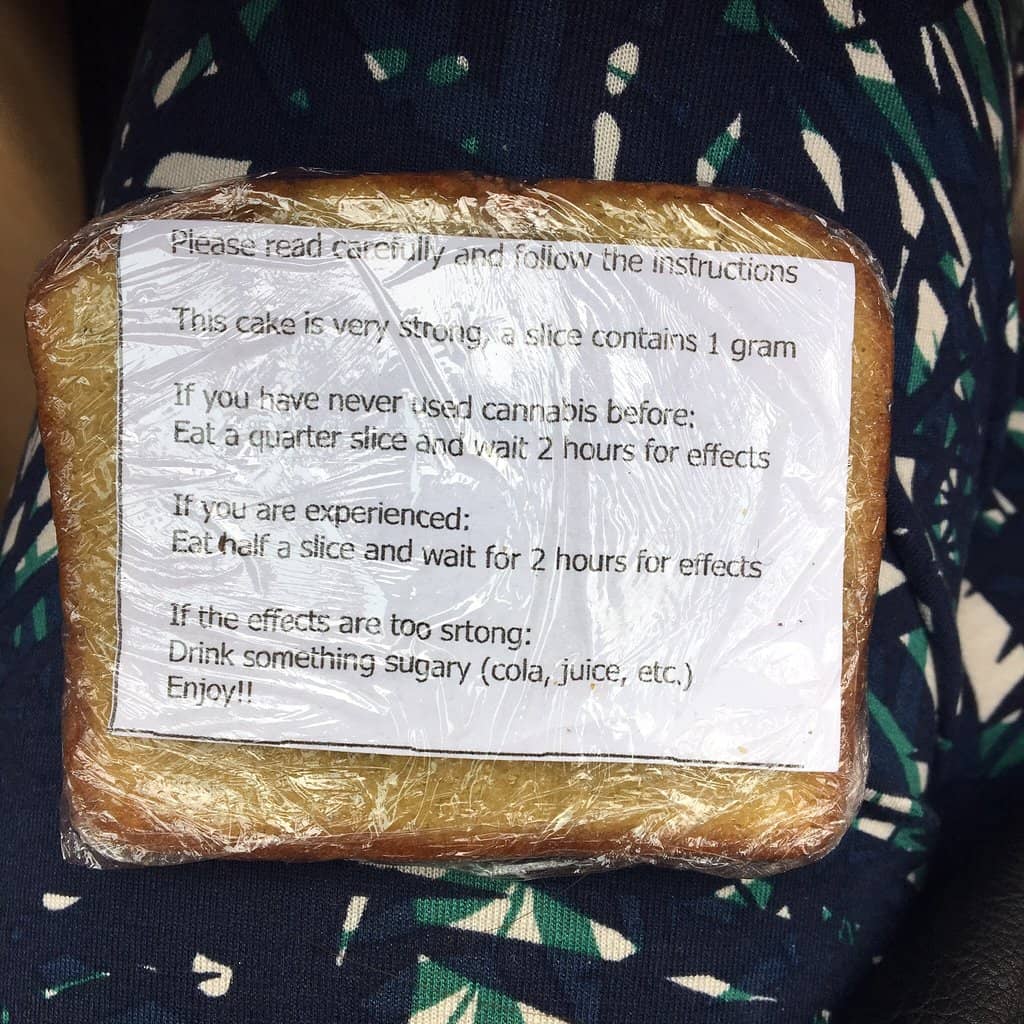 Please read carefully and follow the instructions
This cake is very strong, a slice contains 1 gram
If you have never used cannabis before:
Eat a quarter slice and wait 2 hours for effects
If you are experienced:
Eat half a slice and wait for 2 hours for effects
If the effects are too srtong:
Drink something sugary (cola, juice, etc.)
Enjoy!!